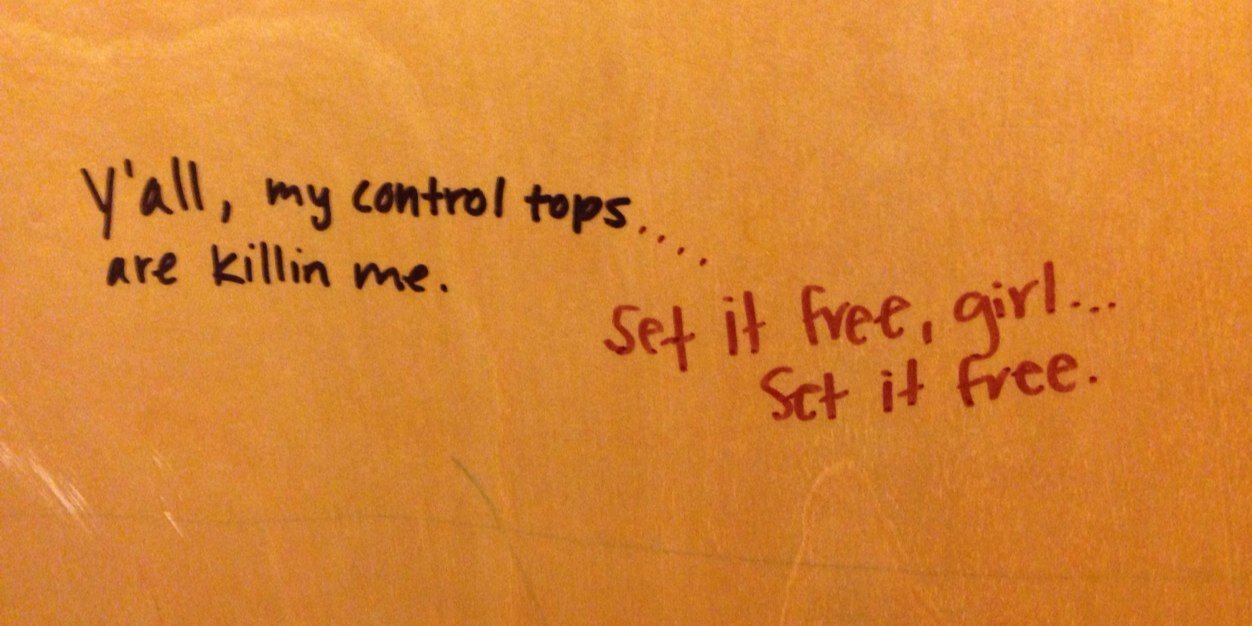 Y'all, my control tops....
are killin me.
Set it free, girl...
Set it free.